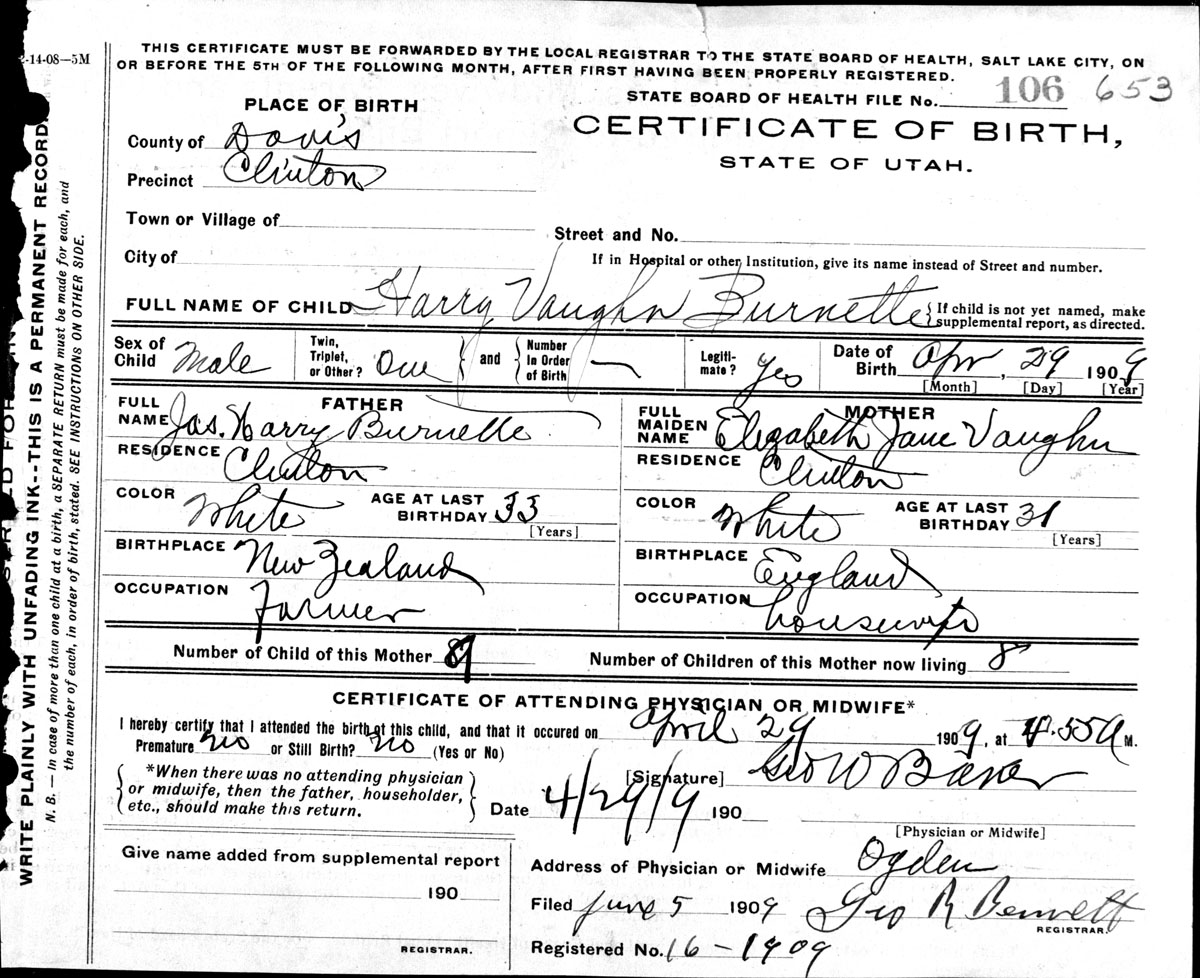 2-14-08—5M
THIS CERTIFICATE MUST BE FORWARDED BY THE LOCAL REGISTRAR TO THE STATE BOARD OF HEALTH, SALT LAKE CITY, ON
OR BEFORE THE 5TH OF THE FOLLOWING MONTH, AFTER FIRST HAVING BEEN PROPERLY REGISTERED.
STATE BOARD OF HEALTH FILE No. 106 653
PLACE OF BIRTH
CERTIFICATE OF BIRTH,
STATE OF UTAH.
County of Davis
Precinct Clinton
Town or Village of
Street and No.
City of
If in Hospital or other Institution, give its name instead of Street and number.
FULL NAME OF CHILD Harry Vaughn Burnette { If child is not yet named, make
supplemental report, as directed.
Sex of Child Male Twin, Triplet, or Other? One } and { Number In Order of Birth — Legiti-mate? Yes Date of Birth Apr, 29 1909
[Month] [Day] [Year]
FATHER
FULL NAME Jas. Harry Burnette
RESIDENCE Clinton
COLOR White AGE AT LAST BIRTHDAY 33
[Years]
BIRTHPLACE New Zealand
OCCUPATION Farmer
MOTHER
FULL MAIDEN NAME Elizabeth Jane Vaughn
RESIDENCE Clinton
COLOR White AGE AT LAST BIRTHDAY 31
[Years]
BIRTHPLACE England
OCCUPATION housewife
Number of Child of this Mother 9 Number of Children of this Mother now living 8
CERTIFICATE OF ATTENDING PHYSICIAN OR MIDWIFE*
I hereby certify that I attended the birth of this child, and that it occured on April 29 1909, at 4.55 A M.
Premature no or Still Birth? no (Yes or No)
*When there was no attending physician
or midwife, then the father, householder,
etc., should make this return.
[Signature] Geo W Baker
Date 4/29/9 190
[Physician or Midwife]
Give name added from supplemental report
190
REGISTRAR.
Address of Physician or Midwife Ogden
Filed June 5 1909 Geo R Bennett
REGISTRAR.
Registered No. 16-1909
WRITE PLAINLY WITH UNFADING INK--THIS IS A PERMANENT RECORD.
N. B. — In case of more than one child at a birth, a SEPARATE RETURN must be made for each, and
the number of each, in order of birth, stated. SEE INSTRUCTIONS ON OTHER SIDE.